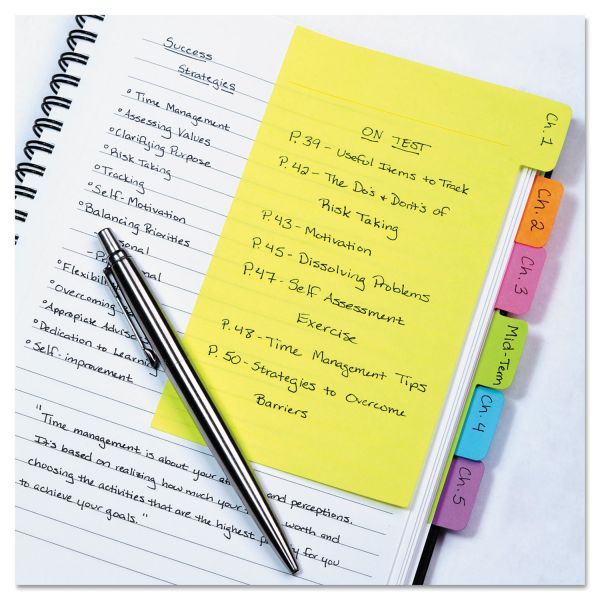 Success
Strategies
° Time Management
° Assessing Values
° Clarifying Purpose
° Risk Taking
° Tracking
° Self-Motivation
° Balancing Priorities
° Flexibility
° Overcoming
° Appropiate
° Dedication to
° Self-improvement
"Time management is about your and perceptions.
It's based on realizing how much your worth and
choosing the activities that are the highest for you
to achieve your goals."
ON TEST
P. 39 - Useful Items to Track
P. 42 - The Do's & Dont's of
Risk Taking
P. 43 - Motivation
P. 45 - Dissolving Problems
P. 47 - Self Assessment
Exercise
P. 48 - Time Management Tips
P. 50 - Strategies to Overcome
Barriers
Ch. 1
Ch. 2
Ch. 3
Mid-Term
Ch. 4
Ch. 5